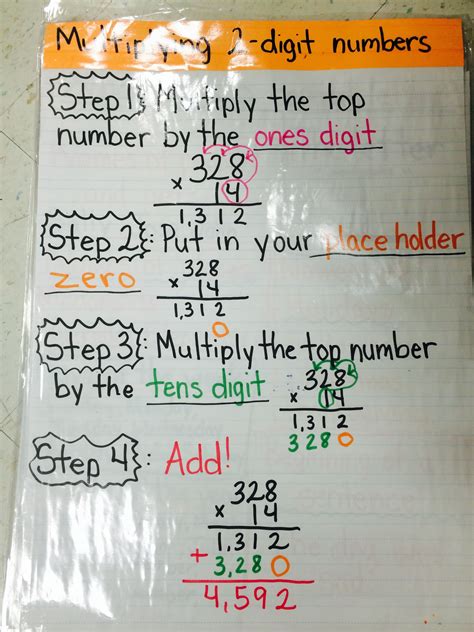 Multiplying 2-digit numbers
Step 1: Multiply the top
number by the ones digit
328
x 14
1,312
Step 2: Put in your place holder
zero
328
x 14
1,312
0
Step 3: Multiply the top number
by the tens digit
328
x 14
1,312
3280
Step 4: Add!
328
x 14
1,312
+ 3,280
4,592